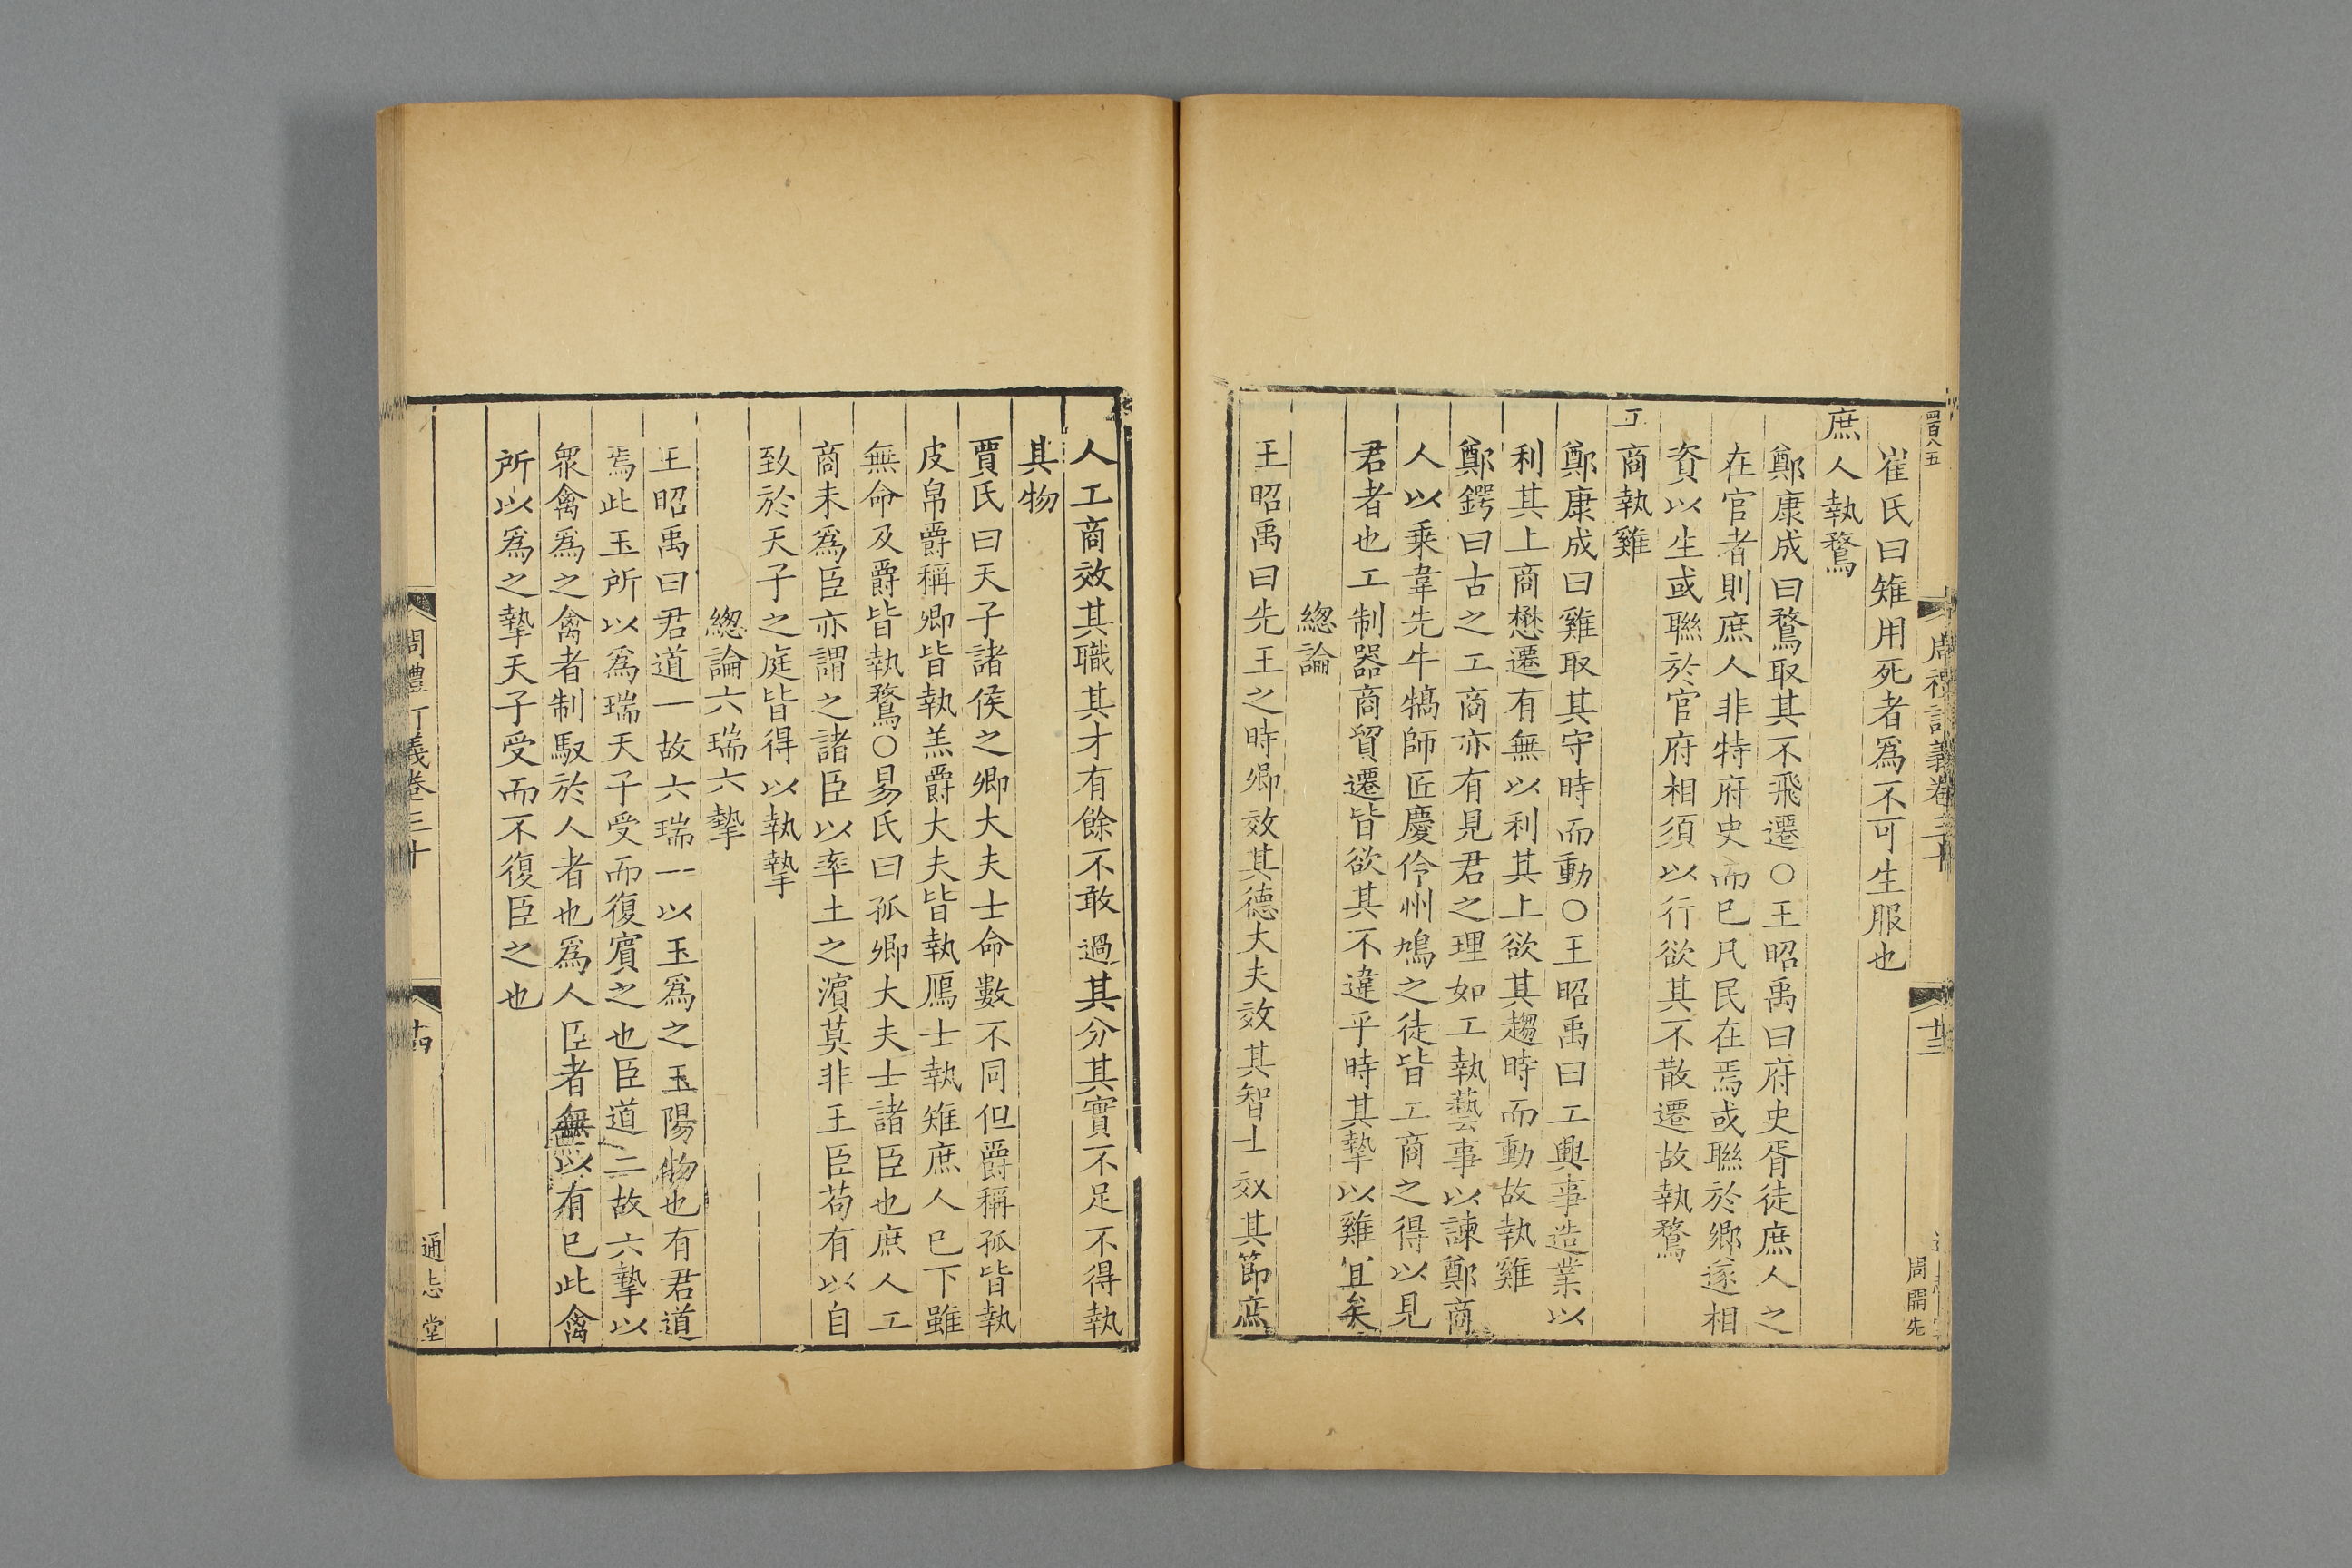 四百八五
崔氏曰雉用死者爲不可生服也
庶人執鶩
鄭康成曰鶩取其不飛遷○王昭禹曰府史胥徒庶人之
在官者則庶人非特府史而巳凡民在焉或聯於鄉遂相
資以生或聯於官府相須以行欲其不散遷故執鶩
工商執雞
鄭康成曰雞取其守時而動○王昭禹曰工興事造業以
利其上商懋遷有無以利其上欲其趨時而動故執雞
鄭鍔曰古之工商亦有見君之理如工執藝事以諫鄭商
人以乘韋先牛犒師匠慶伶州鳩之徒皆工商之得以見
君者也工制器商貿遷皆欲其不違乎時其摯以雞宜矣
總論
王昭禹曰先王之時卿效其德大夫效其智士效其節庶
周禮訂義卷三十
周開先
人工商效其職其才有餘不敢過其分其實不足不得執
其物
賈氏曰天子諸侯之卿大夫士命數不同但爵稱孤皆執
皮帛爵稱卿皆執羔爵大夫皆執鴈士執雉庶人巳下雖
無命及爵皆執鶩○易氏曰孤卿大夫士諸臣也庶人工
商未爲臣亦謂之諸臣以率土之濱莫非王臣苟有以自
致於天子之庭皆得以執摯
總論六瑞六摯
王昭禹曰君道一故六瑞一以玉爲之玉陽物也有君道
焉此玉所以爲瑞天子受而復賓之也臣道二故六摯以
衆禽爲之禽者制馭於人者也爲人臣者無以有巳此禽
所以爲之摯天子受而不復臣之也
周禮訂義卷三十
通志堂